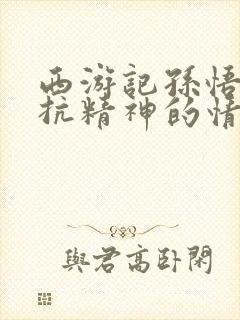 西游記孫悟
抗精神的情
與君高卧閑